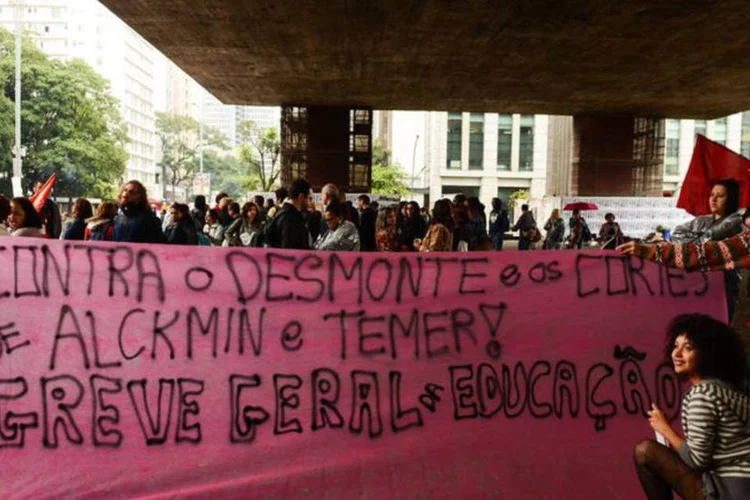 CONTRA O DESMONTE e os CORTES
DE ALCKMIN e TEMER!
GREVE GERAL DA EDUCAÇÃO